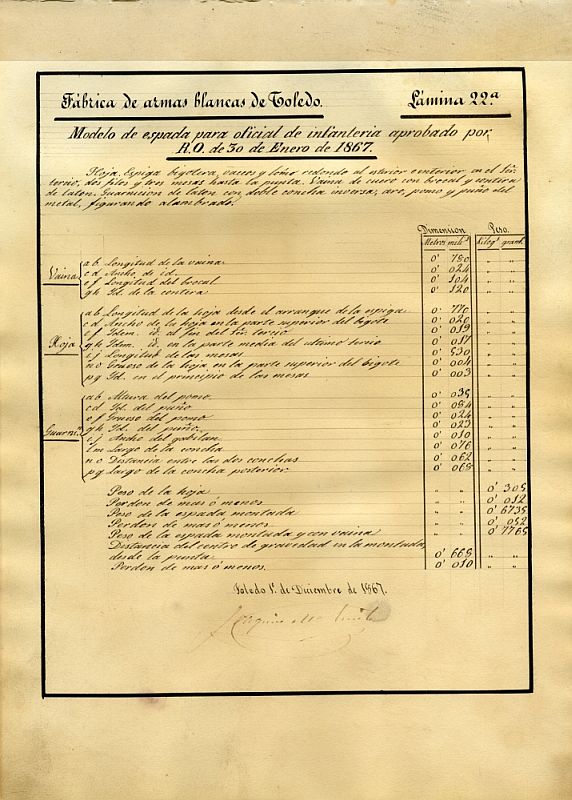 Fábrica de armas blancas de Toledo. Lámina 22ª
Modelo de espada para oficial de infanteria aprobado por
R.O. de 30 de Enero de 1867.
Hoja. Espiga bigotera, vaceo y lomo redondo al esterior é interior en el 1er
tercio, dos filos y tres mesas hasta la punta. Vaina de cuero con brocal y contera
de laton. Guarnicion de laton con doble concha inversa, aro, pomo y puño del
metal, figurando alambrado.
Dimension Peso.
Metros mils Kilogs grams
Vaina
a b Longitud de la vaina 0' 780
c d Ancho de id. 0' 024
e f Longitud del brocal 0' 104
g h Id. de la contera 0' 120
Hoja
a b Longitud de la hoja desde el arranque de la espiga 0' 770
c d Ancho de la hoja en la parte superior del bigote 0' 020
e f Idem. id. al fin del 1er tercio 0' 019
g h Idem. id. en la parte media del ultimo tercio 0' 017
i j Longitud de las mesas 0' 530
n o Grueso de la hoja en la parte superior del bigote 0' 004
p q Id. en el principio de las mesas 0' 003
Guarnn
a b Altura del pomo 0' 035
c d Id. del puño 0' 084
e f Grueso del pomo 0' 024
g h Id. del puño. 0' 023
i j Ancho del gabilan 0' 010
l m Largo de la concha 0' 076
n o Distancia entre las dos conchas 0' 062
p q Largo de la concha posterior 0' 065
Peso de la hoja 0' 305
Perdon de mas ó menos 0' 012
Peso de la espada montada 0' 6735
Perdon de mas ó menos 0' 052
Peso de la espada montada y con vaina 0' 7765
Distancia del centro de gravedad en la montada,
desde la punta 0' 665
Perdon de mas ó menos. 0' 010
Toledo 1º de Diciembre de 1867.